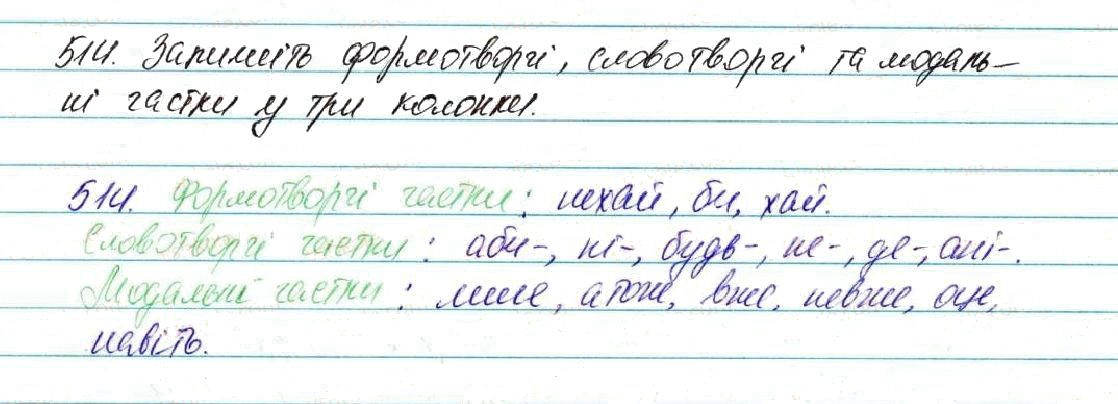 514. Запишіть формотворчі, словотворчі та модаль-
ні частки у три колонки.
514. Формотворчі частки: нехай, би, хай.
Словотворчі частки: аби-, ні-, будь-, не-, де-, ані-.
Модальні частки: лише, атож, вже, невже, оце,
навіть.